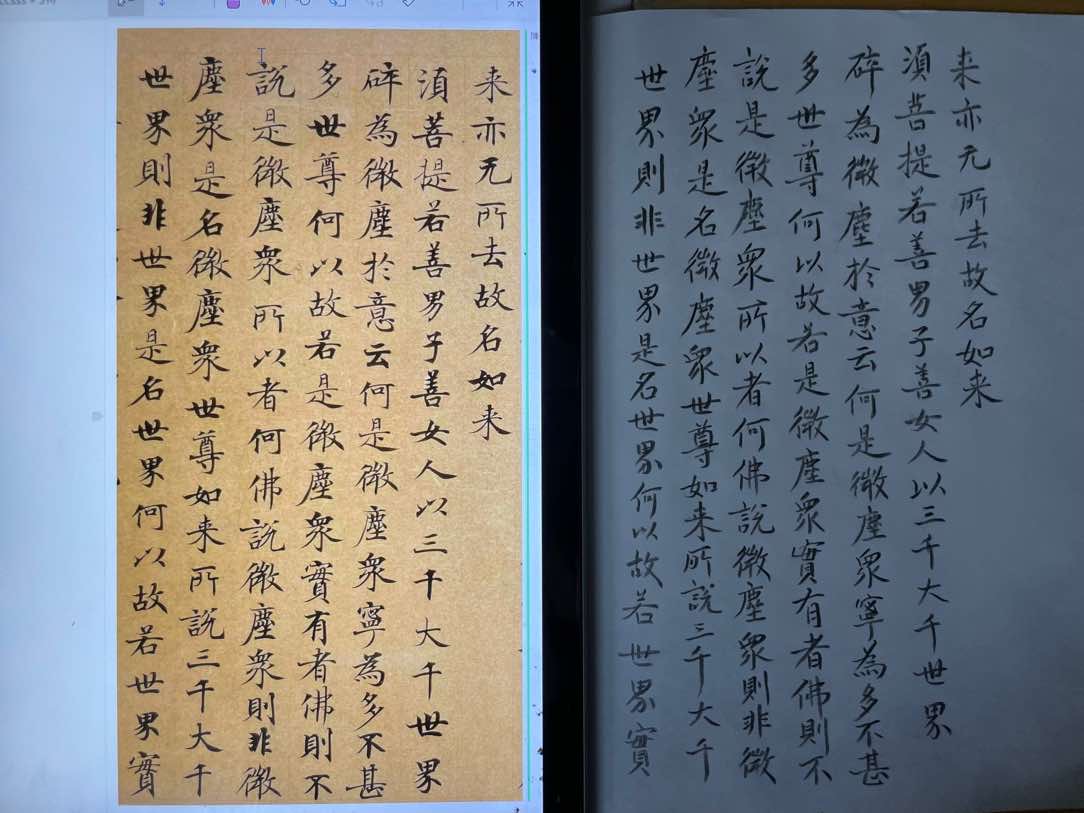 来亦无所去故名如来
湏菩提若善男子善女人以三千大千世界
碎為微塵於意云何是微塵衆寧為多不甚
多世尊何以故若是微塵衆實有者佛則不
說是微塵衆所以者何佛說微塵衆則非微
塵衆是名微塵衆世尊如来所說三千大千
世界則非世界是名世界何以故若世界實
来亦无所去故名如来
湏菩提若善男子善女人以三千大千世界
碎為微塵於意云何是微塵衆寧為多不甚
多世尊何以故若是微塵衆實有者佛則不
說是微塵衆所以者何佛說微塵衆則非微
塵衆是名微塵衆世尊如来所說三千大千
世界則非世界是名世界何以故若世界實